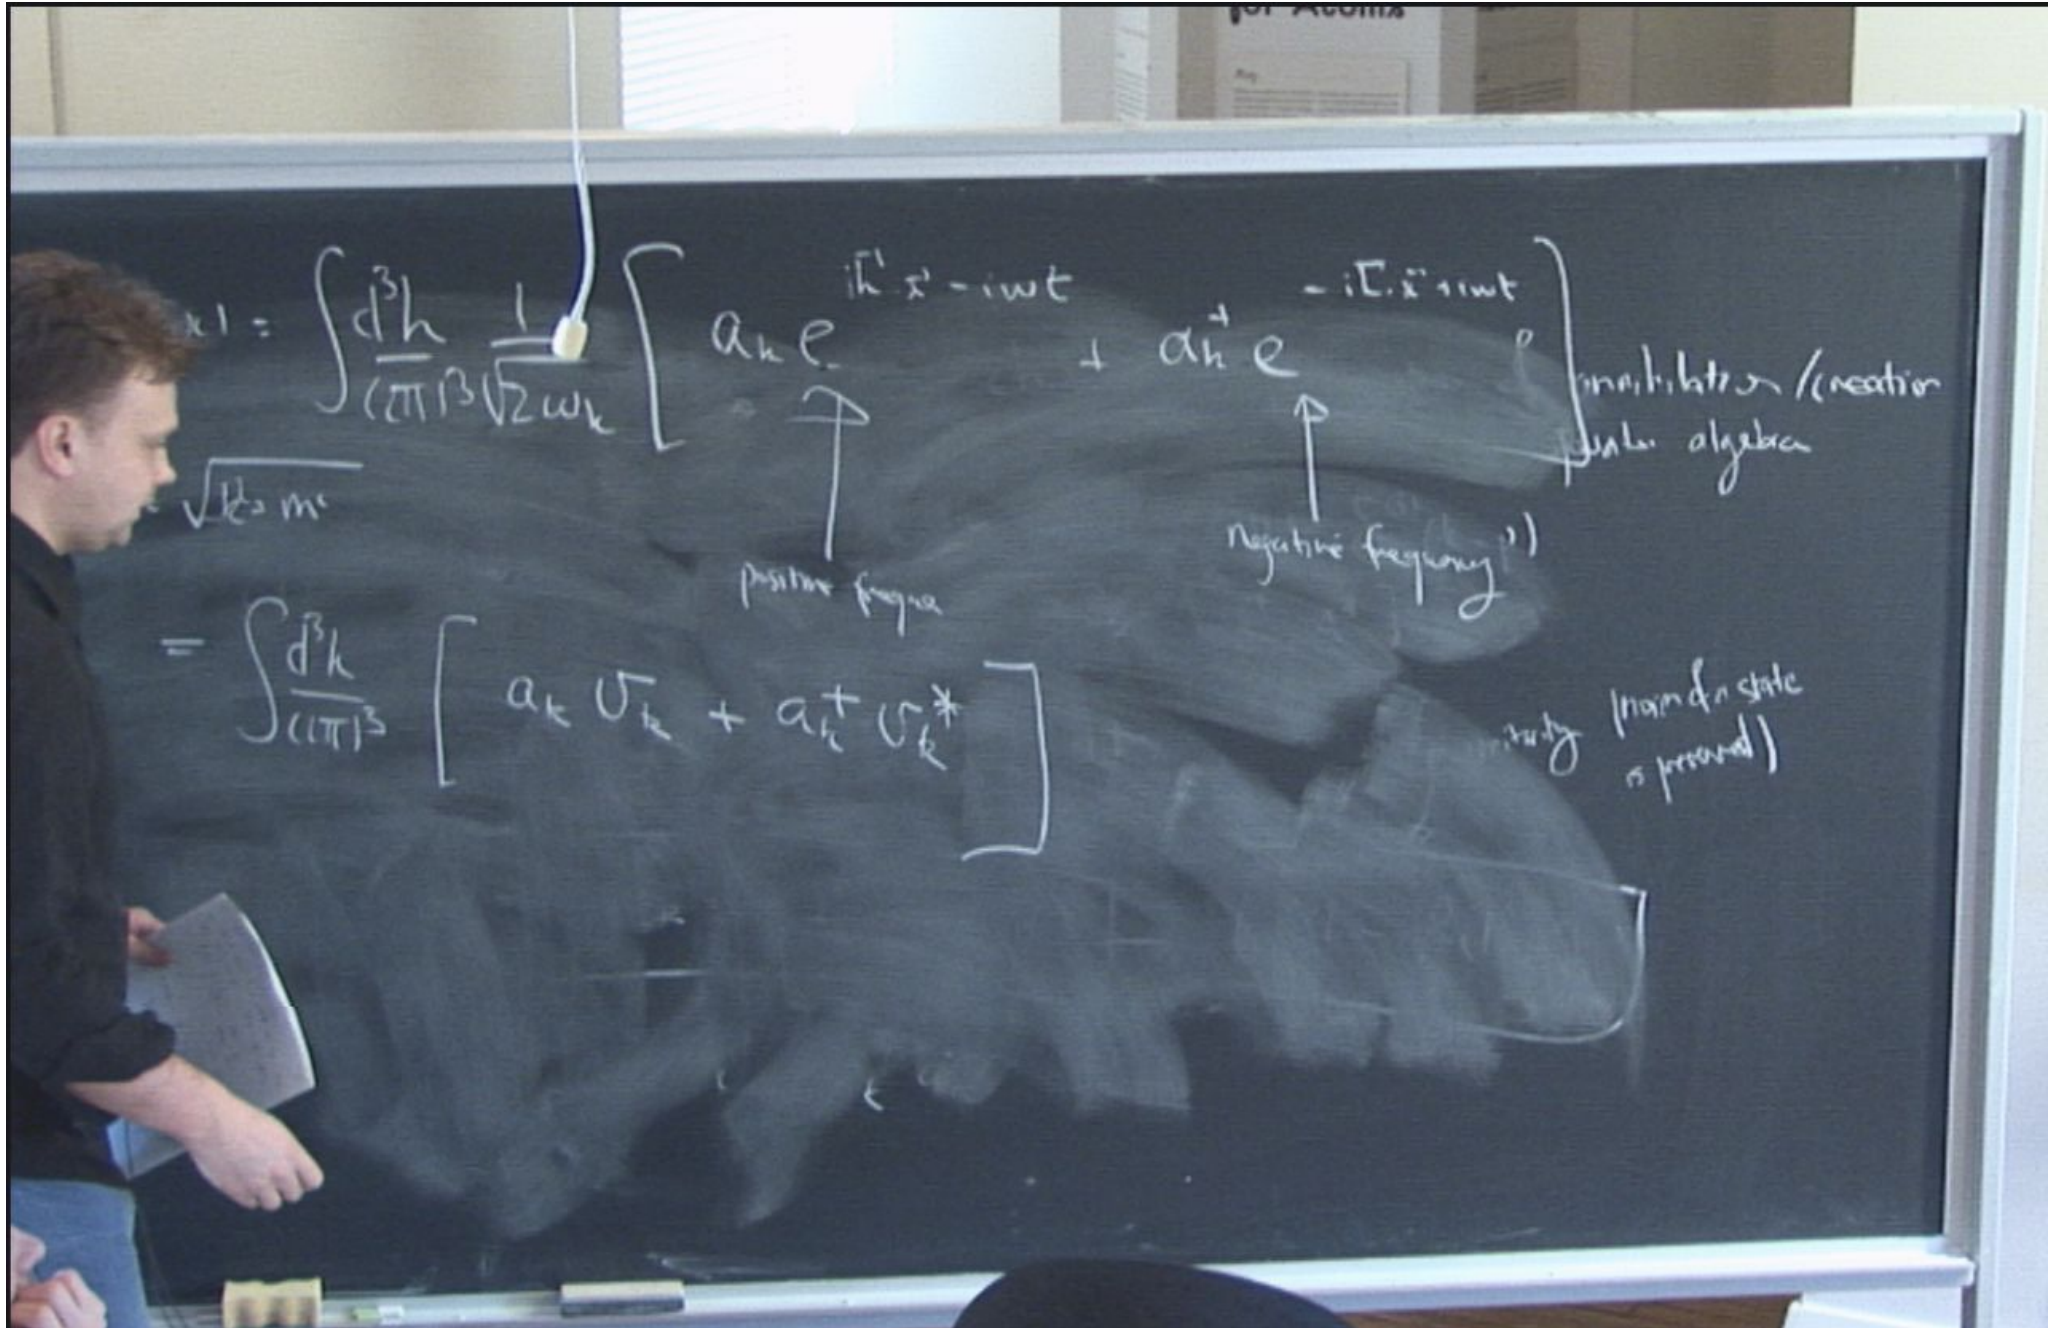 for Atoms
x) = ∫ d³k/(2π)³ 1/√2ω_k [ a_k e^{i\vec{k}·\vec{x} - iωt} + a_k^+ e^{-i\vec{k}·\vec{x} + iωt} ]
annihilation / creation
algebra
√k²+m²
positive freque
negative frequency")
= ∫ d³k/(2π)³ [ a_k v_k + a_k^+ v_k^* ]
(norm of a state
is preserved)